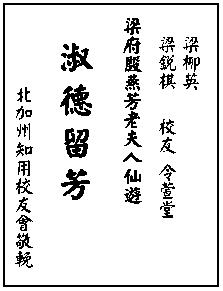 梁柳英
梁銳棋 校友 令萱堂
梁府殷燕芳老夫人仙遊
淑德留芳
北加州知用校友會敬輓